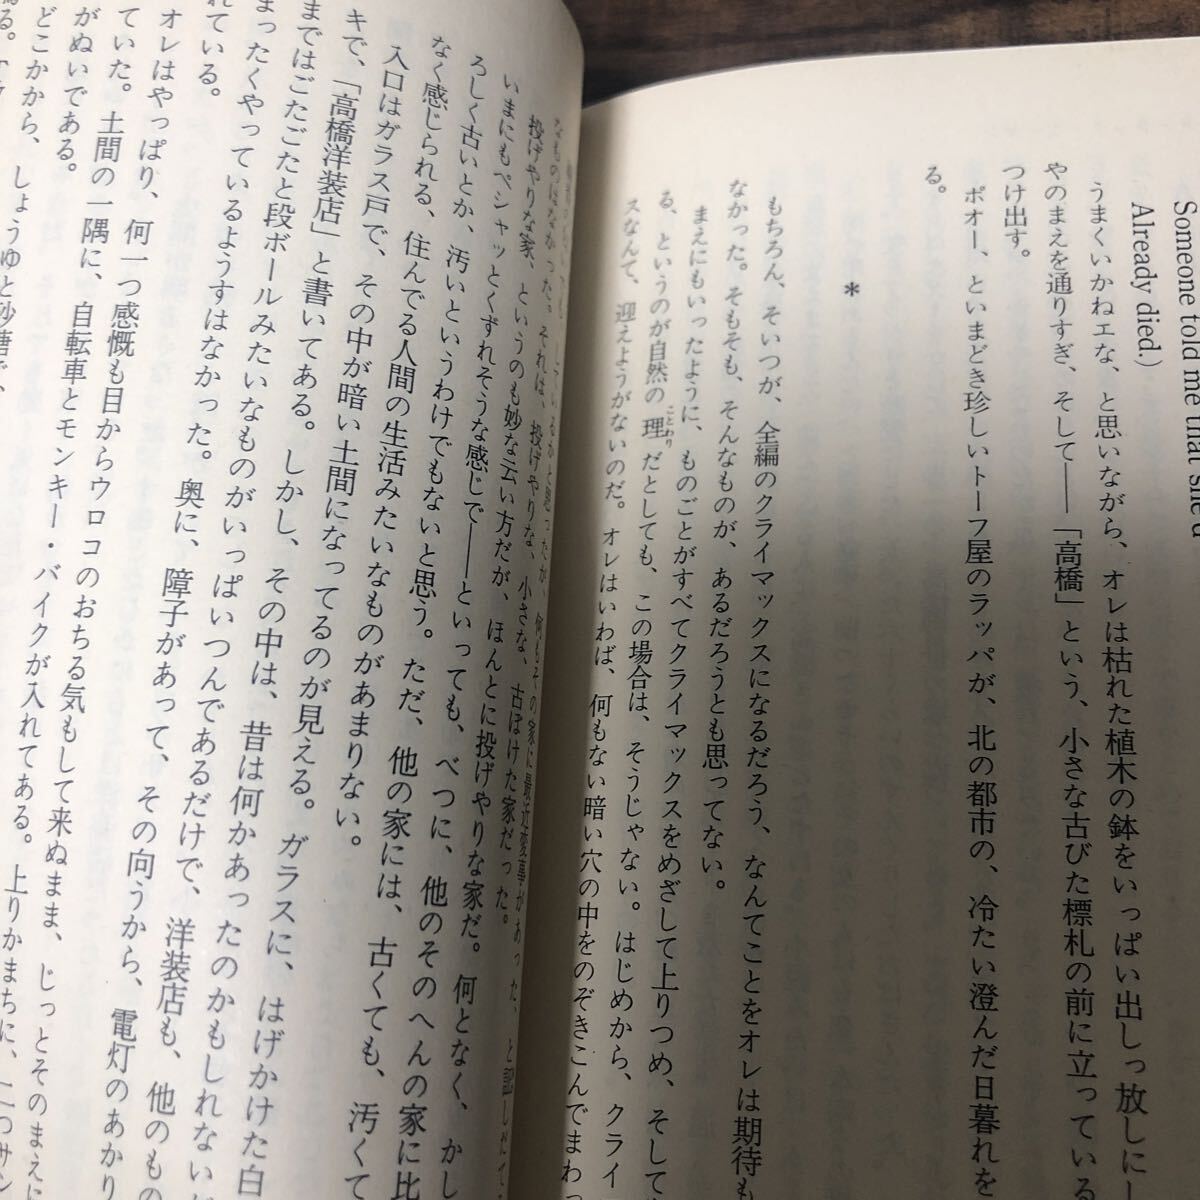 Someone told me that she'd
Already died.)
うまくいかねエな、と思いながら、オレは枯れた植木の鉢をいっぱい出しっ放しにし
やのまえを通りすぎ、そして——「高橋」という、小さな古びた標札の前に立っている
つけ出す。
ポオー、といまどき珍しいトーフ屋のラッパが、北の都市の、冷たい澄んだ日暮れを
る。
*
もちろん、そいつが、全編のクライマックスになるだろう、なんてことをオレは期待も
なかった。そもそも、そんなものが、あるだろうとも思ってない。
まえにもいったように、ものごとがすべてクライマックスをめざして上りつめ、そして
る、というのが自然の理だとしても、この場合は、そうじゃない。はじめから、クライ
スなんて、迎えようがないのだ。オレはいわば、何もない暗い穴の中をのぞきこんでまわっ
しているかと思ったが、何もその家に最近変事があった、
なものはなかった。それは、投げやりな、小さな、古ぼけた家だった。
投げやりな家、というのも妙な云い方だが、ほんとに投げやりな家だ。何となく、かし
いまにもペシャッとくずれそうな感じで——といっても、べつに、他のそのへんの家に比
ろしく古いとか、汚いというわけでもないと思う。ただ、他の家には、古くても、汚くて
なく感じられる、住んでる人間の生活みたいなものがあまりない。
入口はガラス戸で、その中が暗い土間になってるのが見える。ガラスに、はげかけた白
キで、「高橋洋装店」と書いてある。しかし、その中は、昔は何かあったのかもしれないが
まではごたごたと段ボールみたいなものがいっぱいつんであるだけで、洋装店も、他のもの
まったくやっているようすはなかった。奥に、障子があって、その向うから、電灯のあかり
れている。
オレはやっぱり、何一つ感慨も目からウロコのおちる気もして来ぬまま、じっとそのまえに
ていた。土間の一隅に、自転車とモンキー・バイクが入れてある。上りかまちに、
がぬいである。
どこかから、しょうゆと砂糖で、